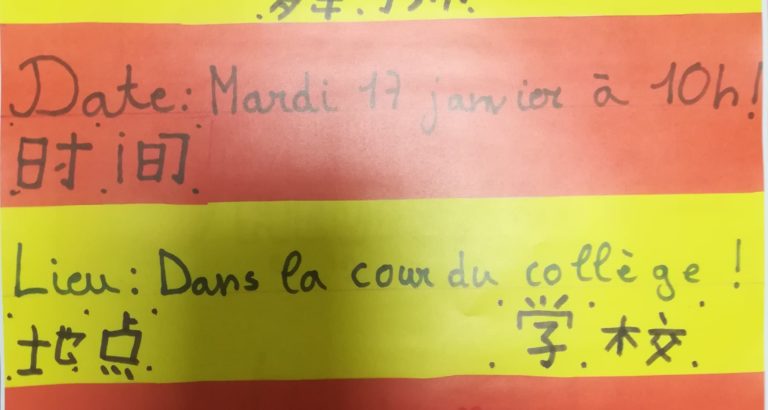 Date: Mardi 17 janvier à 10h!
时间
Lieu: Dans la cour du collège !
地点 学校